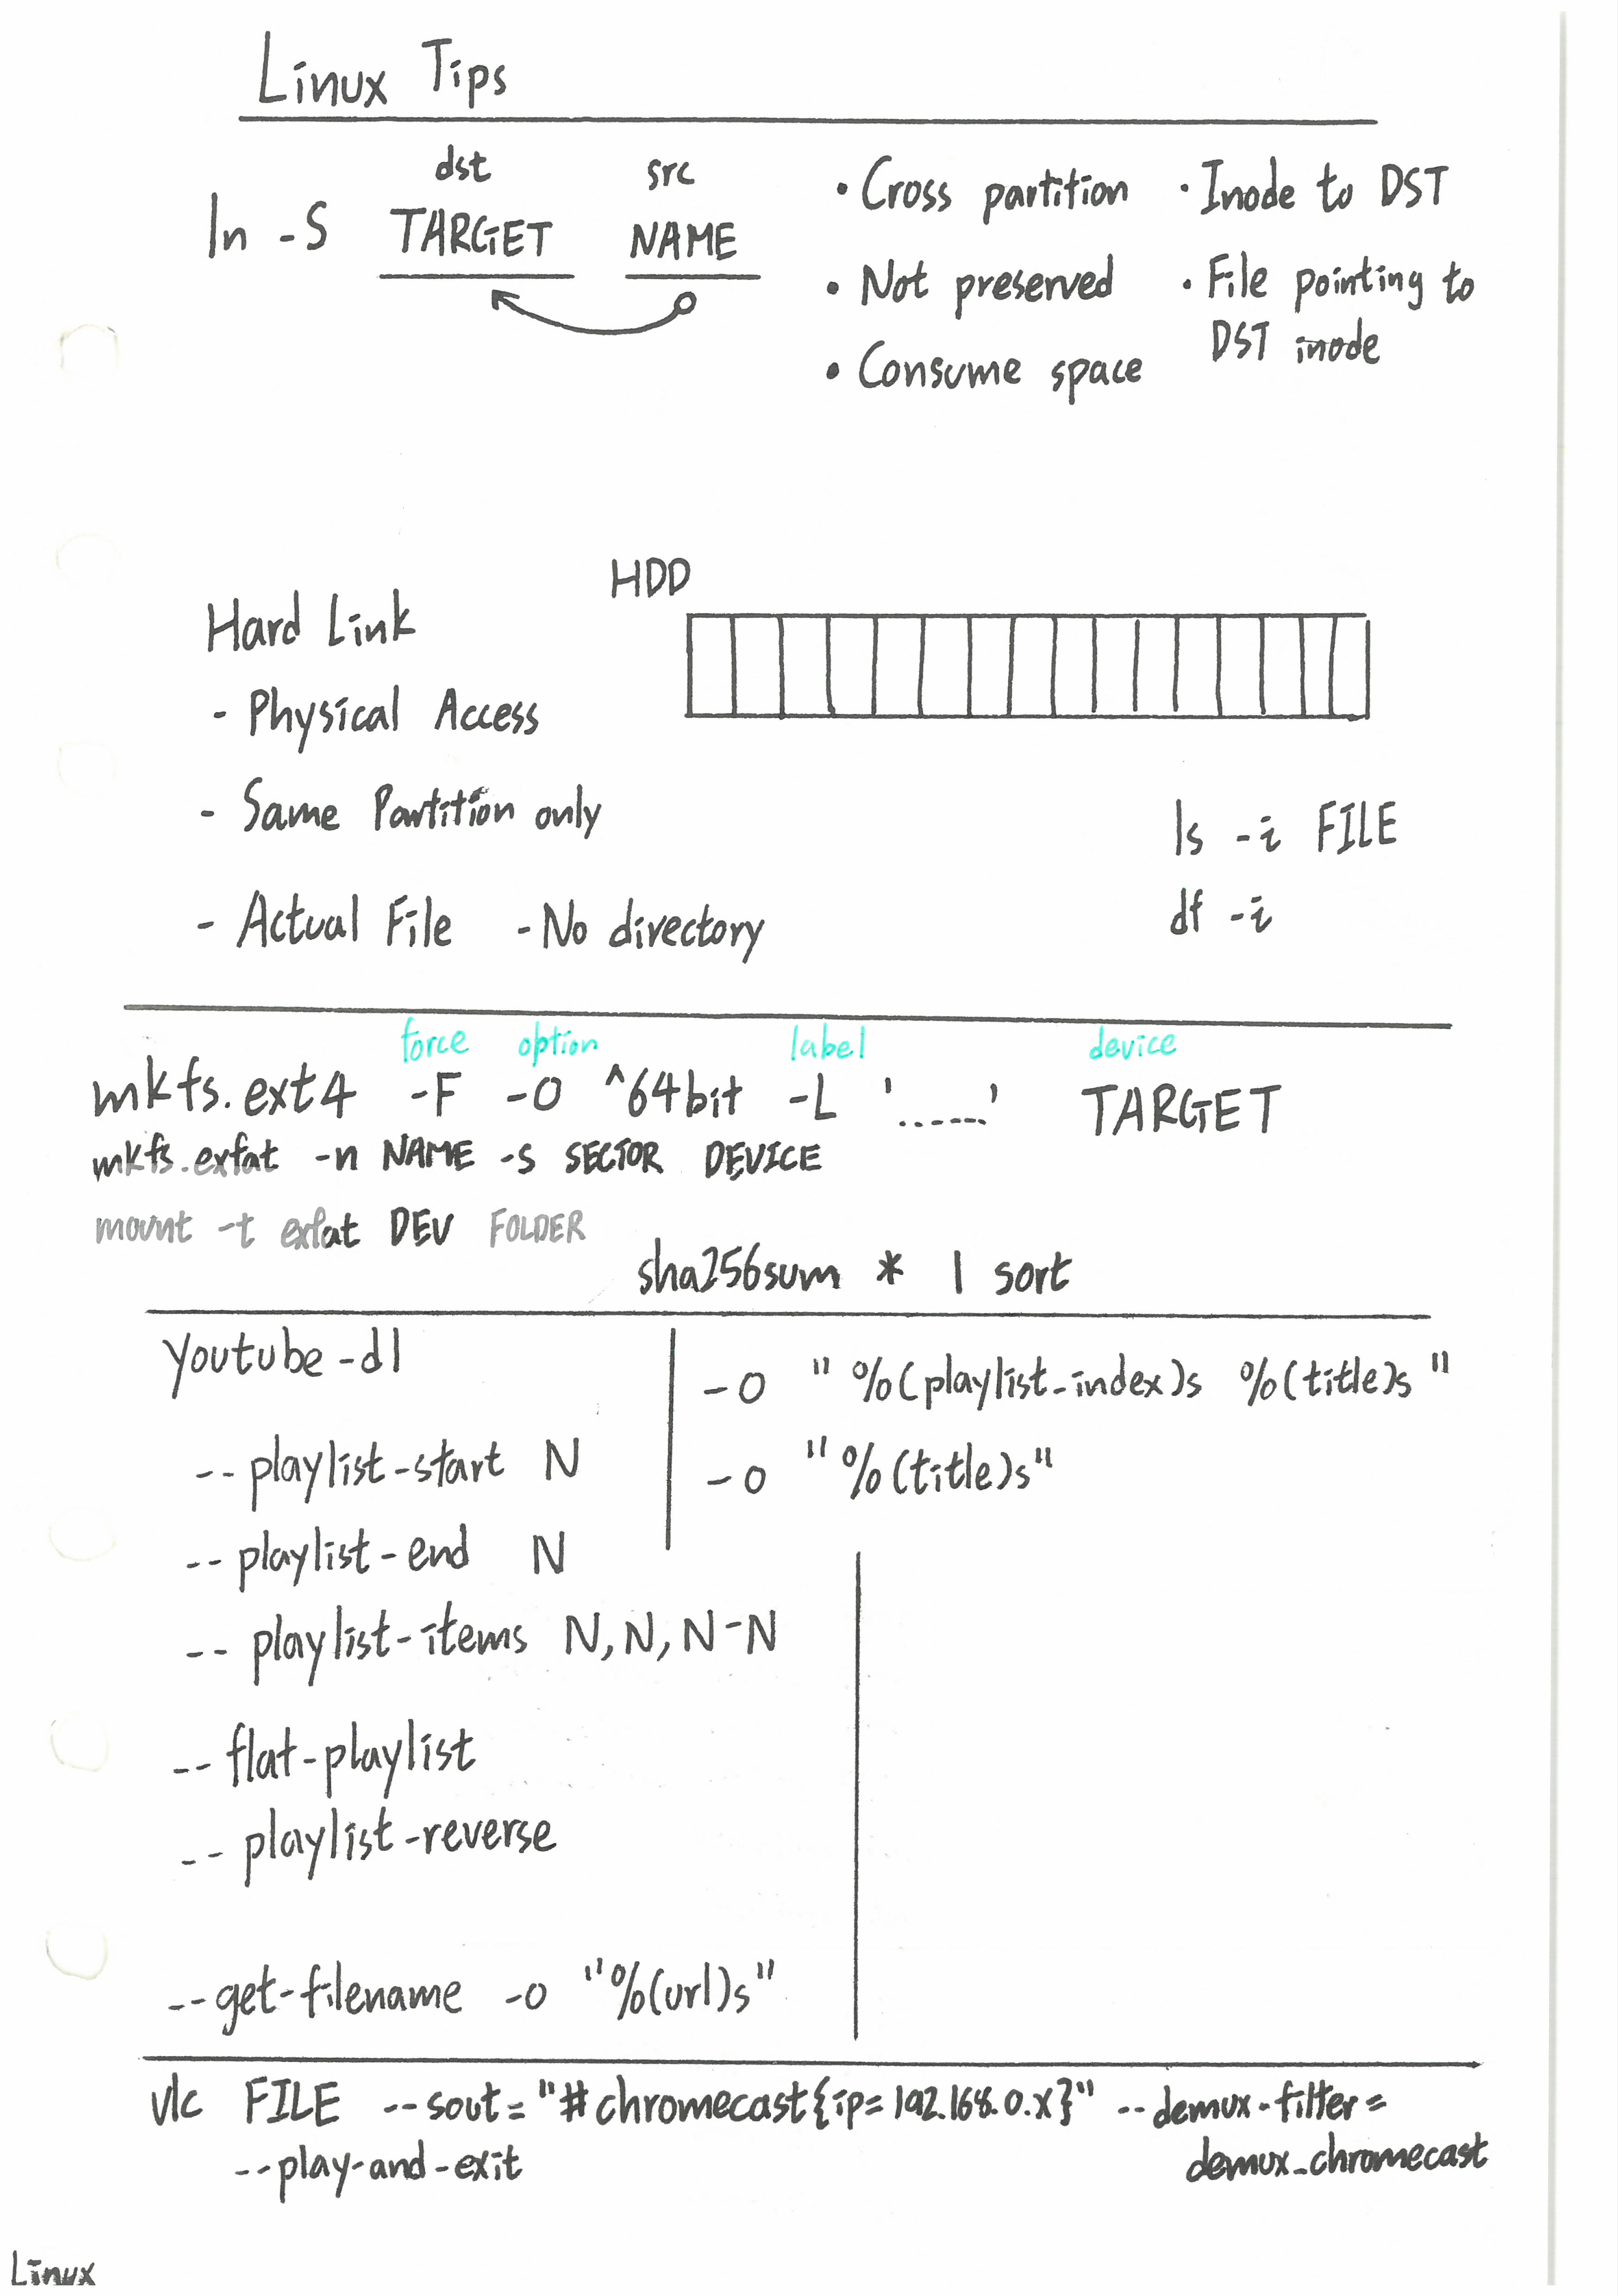 Linux Tips
dst src
ln -s TARGET NAME
• Cross partition
• Not preserved
• Consume space
• Inode to DST
• File pointing to
DST inode
HDD
Hard Link
- Physical Access
- Same Partition only
- Actual File - No directory
ls -i FILE
df -i
force option label device
mkfs.ext4 -F -O ^64bit -L '......' TARGET
mkfs.exfat -n NAME -s SECTOR DEVICE
mount -t exfat DEV FOLDER
sha256sum * | sort
youtube-dl
--playlist-start N
--playlist-end N
--playlist-items N,N,N-N
--flat-playlist
--playlist-reverse
--get-filename -o "%(url)s"
-o "%(playlist_index)s %(title)s"
-o "%(title)s"
vlc FILE --sout="#chromecast{ip=192.168.0.X}" --demux-filter=
demux_chromecast
--play-and-exit
Linux